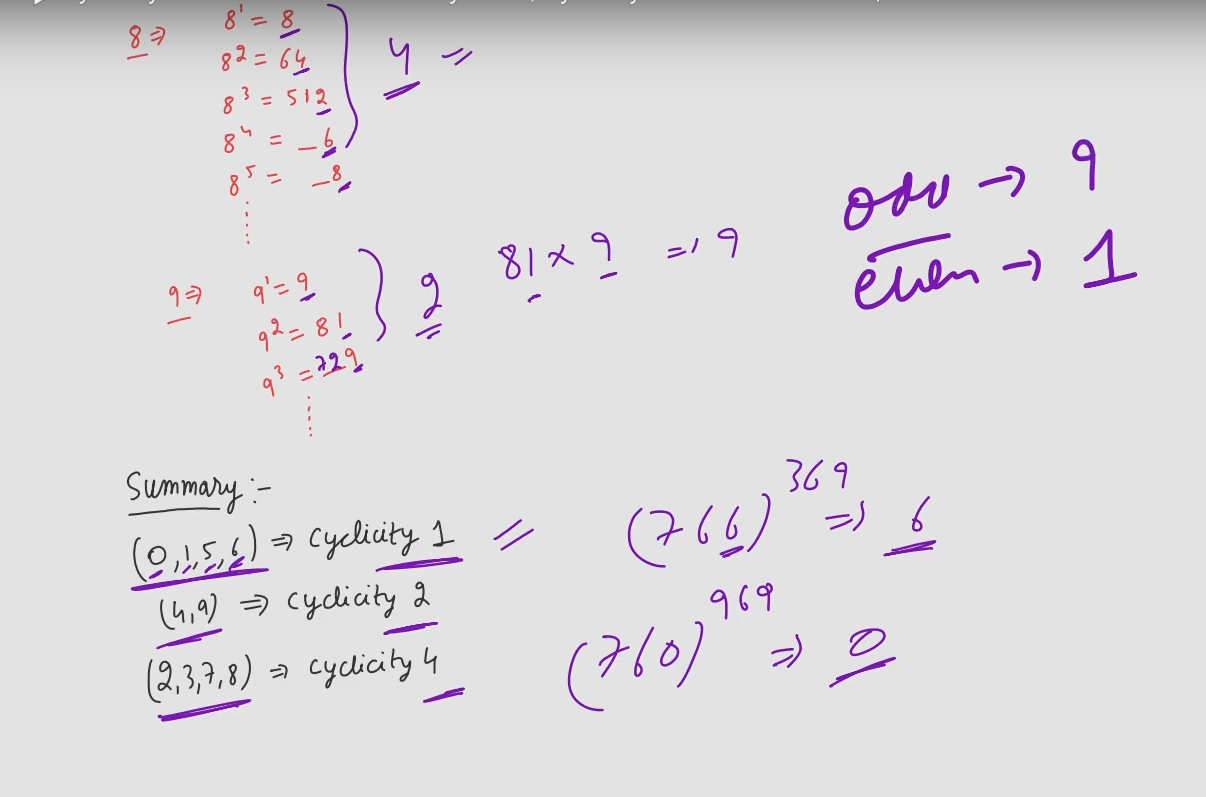 8 ⇒ 8¹ = 8
8² = 64
8³ = 512
8⁴ = _6
8⁵ = _8
4 ⇒
9 ⇒ 9¹ = 9
9² = 81
9³ = 729
2
81 × 9 ⇒ 9
odd → 9
even → 1
Summary :-
(0,1,5,6) ⇒ cyclicity 1
(4,9) ⇒ cyclicity 2
(2,3,7,8) ⇒ cyclicity 4
(766)³⁶⁹ ⇒ 6
(760)⁹⁶⁹ ⇒ 0